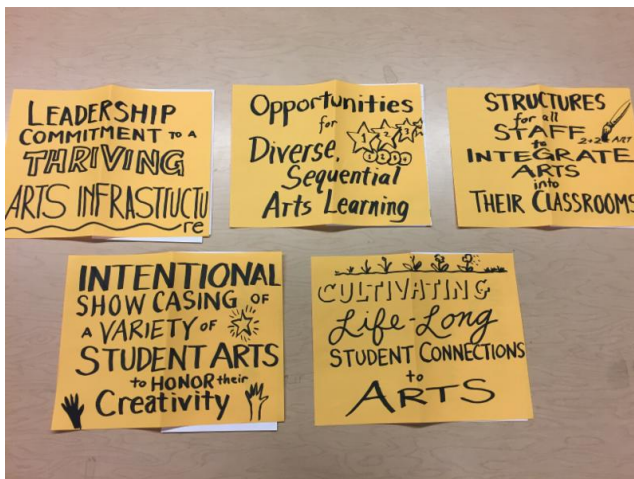 LEADERSHIP
COMMITMENT TO A
THRIVING
ARTS INFRASTIUCTU
re
Opportunities
for
Diverse,
Sequential
Arts Learning
STRUCTURES
for all
STAFF
to
2+2= ART
INTEGRATE
ARTS
into
THEIR CLASSROOMS
INTENTIONAL
SHOW CASING OF
A VARIETY OF
STUDENT ARTS
to HONOR their
Creativity
CULTIVATING
Life-Long
STUDENT CONNECTIONS
to
ARTS